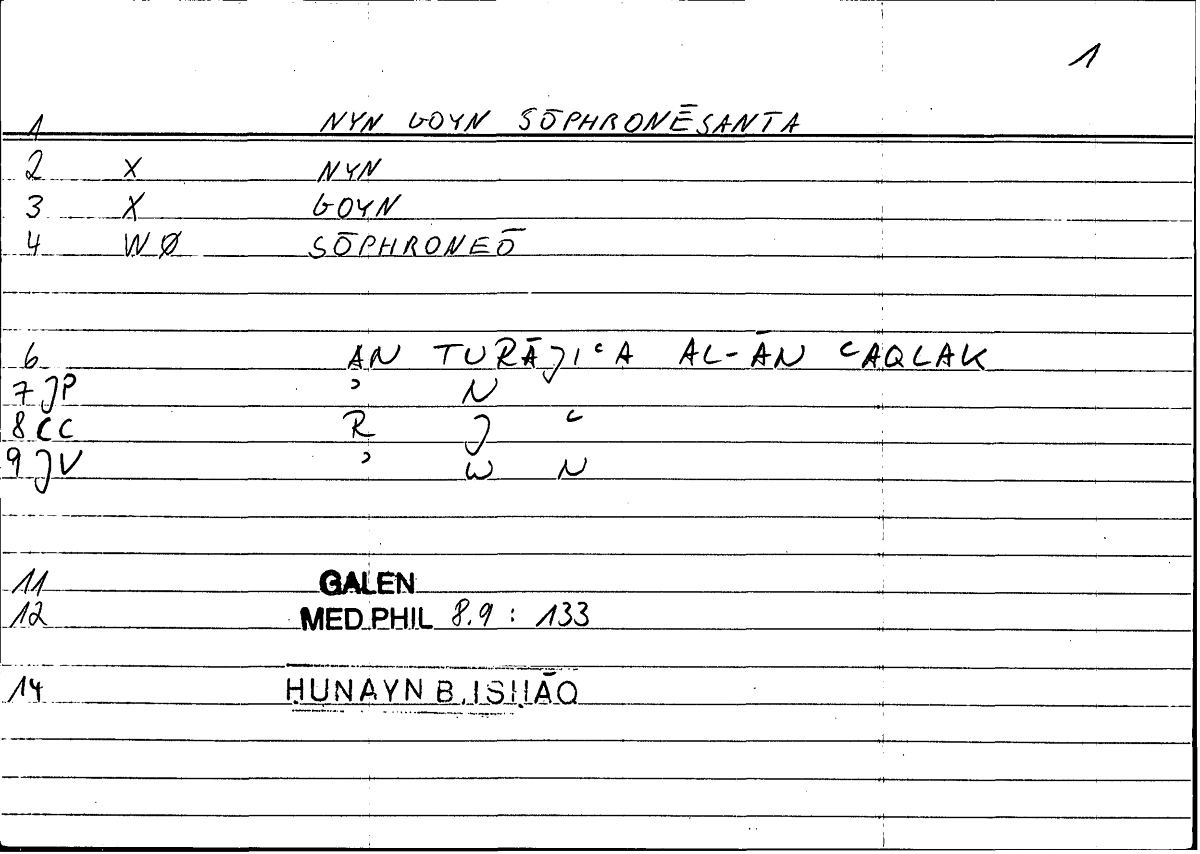 1
1 NYN GOYN SŌPHRONĒSANTA
2 X NYN
3 X GOYN
4 W Ø SŌPHRONEŌ
6 AN TURĀJIʿA AL-ĀN ʿAQLAK
7 JP ʾ N
8 CC R J ʿ
9 JV ʾ W N
11 GALEN
12 MED PHIL 8.9 : 133
14 ḤUNAYN B. ISḤĀQ